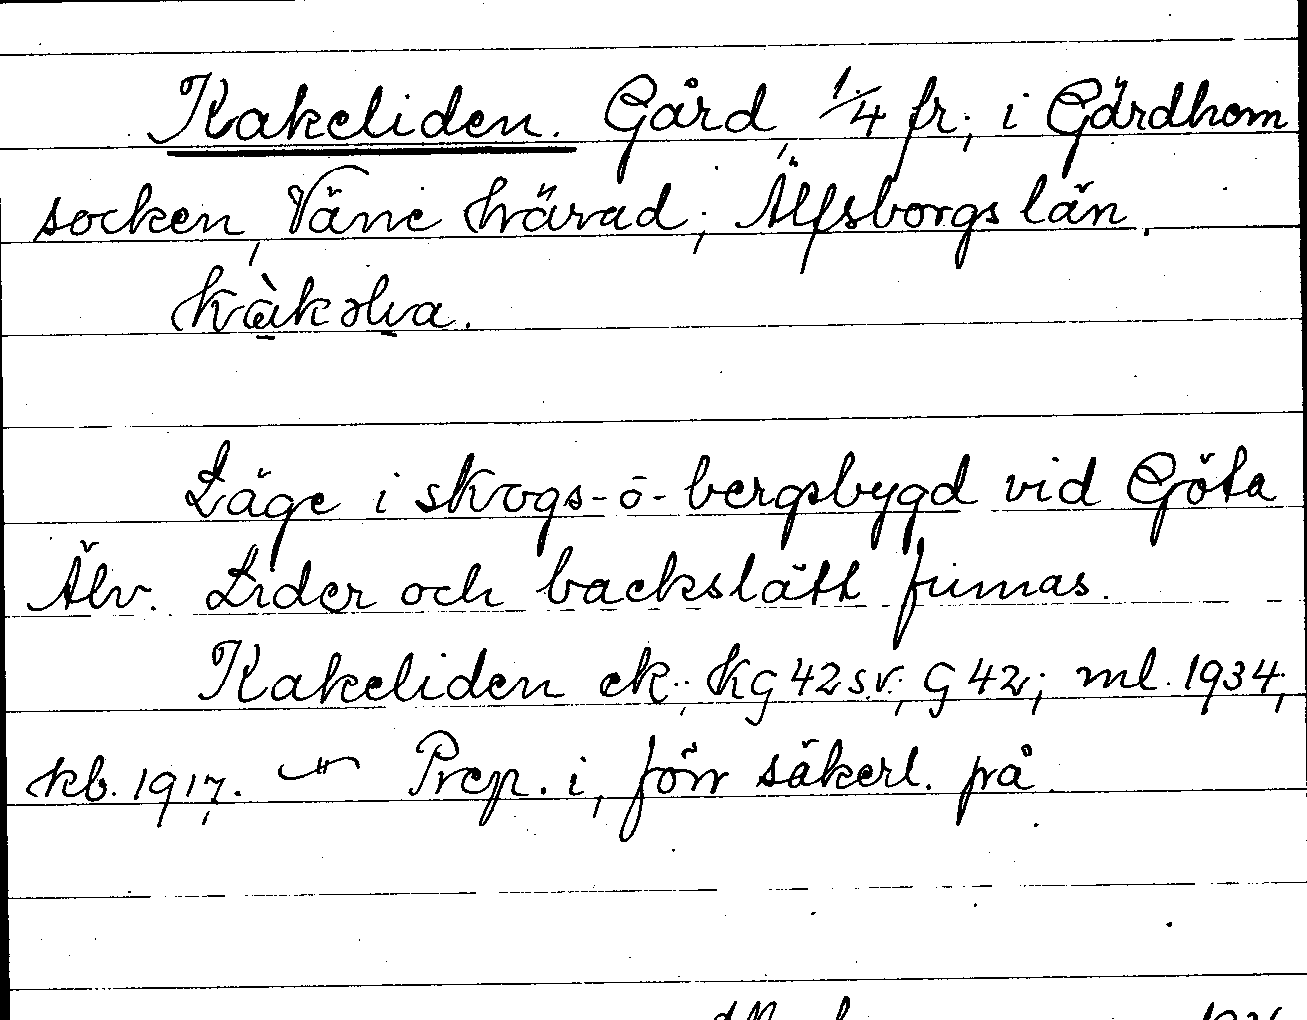 Kakeliden. Gård, 1/4 fr., i Gärdhem
socken, Väne härad, Älfsborgs län.
kàkəlia.
Läge i skogs- o- bergsbygd vid Göta
Älv. Lider och backslätt finnas.
Kakeliden ek.; kg 42 s.v.; G 42; ml. 1934;
kb. 1917. Prep. i, förr säkerl. på.